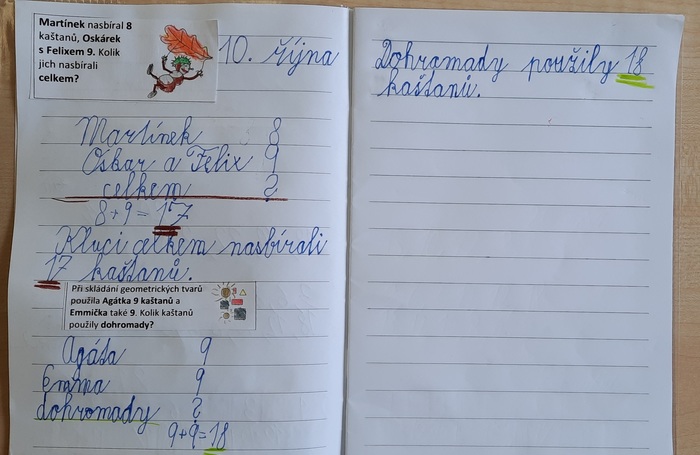 Martínek nasbíral 8
kaštanů, Oskárek
s Felixem 9. Kolik
jich nasbírali
celkem?
10. října
Martínek 8
Oskar a Felix 9
celkem ?
8+9=17
Kluci celkem nasbírali
17 kaštanů.
Při skládání geometrických tvarů
použila Agátka 9 kaštanů a
Emmička také 9. Kolik kaštanů
použily dohromady?
Agáta 9
Emma 9
dohromady ?
9+9=18
Dohromady použily 18
kaštanů.